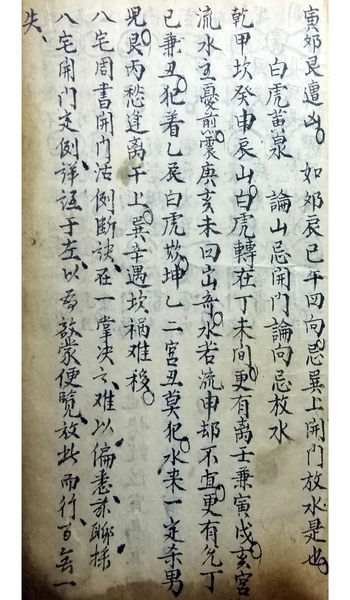 寅邜艮遭凶。如邜辰巳午四向。忌巽上開門放水是也。
白虎黄泉 論山忌開門論向忌放水
乾甲坎癸申辰山。白虎轉在丁未间。更有离壬兼寅戍。亥宮
流水主憂煎。震庚亥未四山奇。水若流申却不宜。更有兊丁
巳兼丑。犯着乙辰白虎欺。坤乙二宮丑莫犯。水来一定杀男
児。艮丙愁逢离午上。巽辛遇坎祸难移。
八宅周書開門活例斷訣、在一掌决之、难以偏悉、兹聊採
八宅開門定例、詳註于左、以爲啟蒙便覧、放此而行、百無一
失、